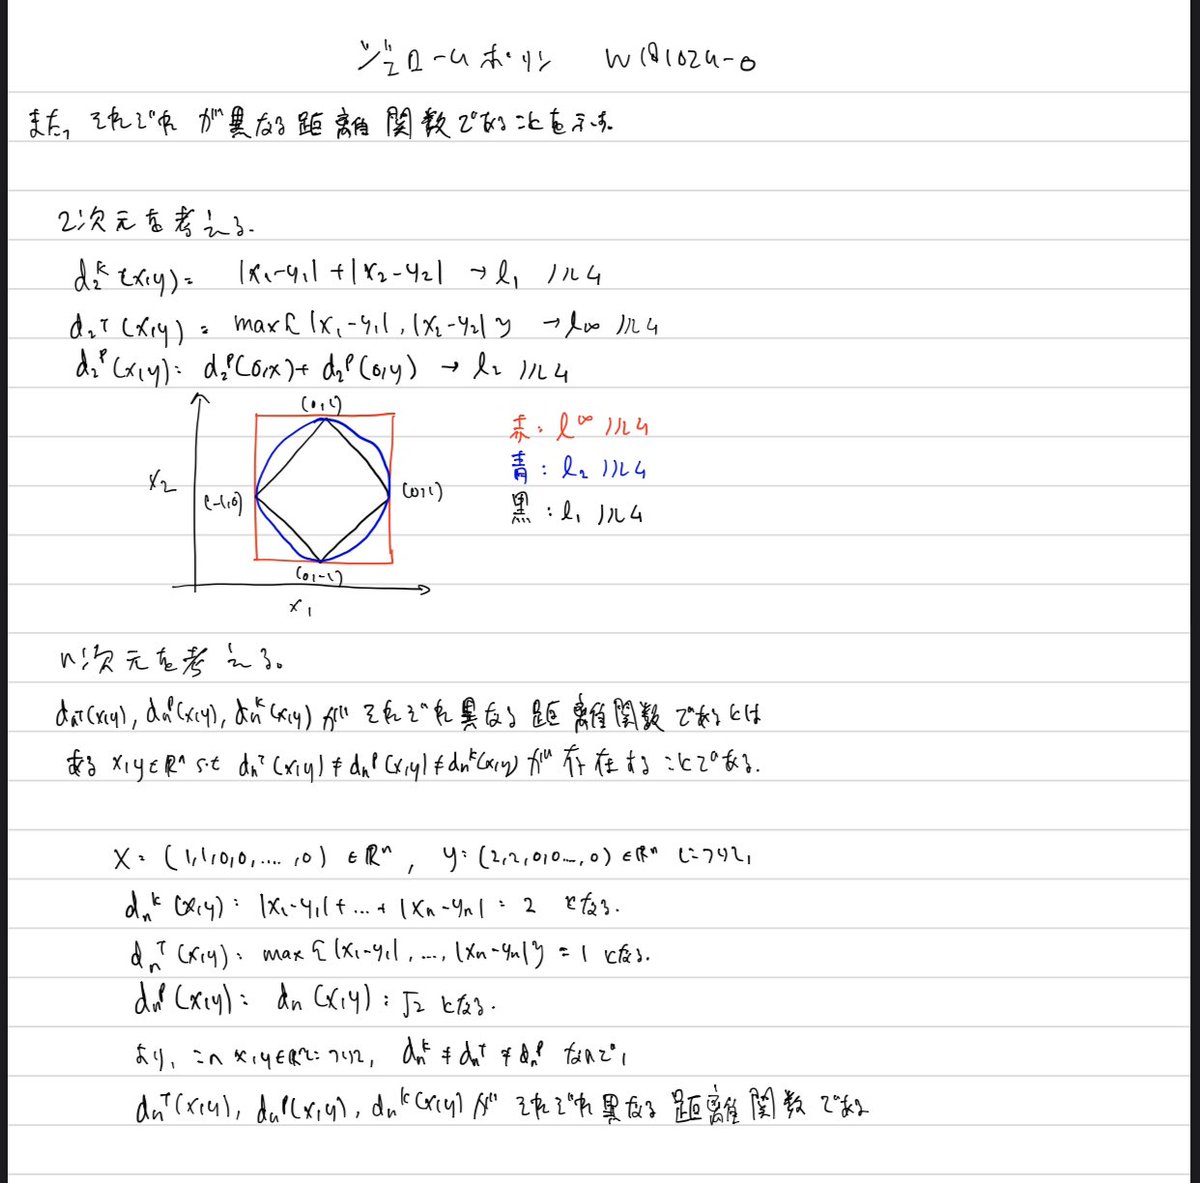 ジェロームポリン W181024-0
また、それぞれが異なる距離関数であることを示す。
2次元を考える。
d₂ᵏ(x,y) = |x₁-y₁| + |x₂-y₂| → l₁ ノルム
d₂ᵀ(x,y) = max{|x₁-y₁|, |x₂-y₂|} → l∞ ノルム
d₂ᵖ(x,y) = d₂ᵖ(0,x) + d₂ᵖ(0,y) → l₂ ノルム
(0,1)
赤: l∞ ノルム
x₂
青: l₂ ノルム
(-1,0)
(0,1)
黒: l₁ ノルム
(0,-1)
x₁
n次元を考える。
dₙᵀ(x,y), dₙᵖ(x,y), dₙᵏ(x,y) がそれぞれ異なる距離関数であるとは
ある x,y∈ℝⁿ s.t dₙᵀ(x,y) ≠ dₙᵖ(x,y) ≠ dₙᵏ(x,y) が存在することである。
x = (1,1,0,0,....,0) ∈ℝⁿ, y = (2,2,0,0...,0) ∈ℝⁿ について、
dₙᵏ(x,y) = |x₁-y₁| + ... + |xₙ-yₙ| = 2 となる。
dₙᵀ(x,y) = max{|x₁-y₁|, ..., |xₙ-yₙ|} = 1 となる。
dₙᵖ(x,y) = dₙ(x,y) = √2 となる。
より、この x,y∈ℝⁿ について、 dₙᵏ ≠ dₙᵀ ≠ dₙᵖ なので、
dₙᵀ(x,y), dₙᵖ(x,y), dₙᵏ(x,y) がそれぞれ異なる距離関数である